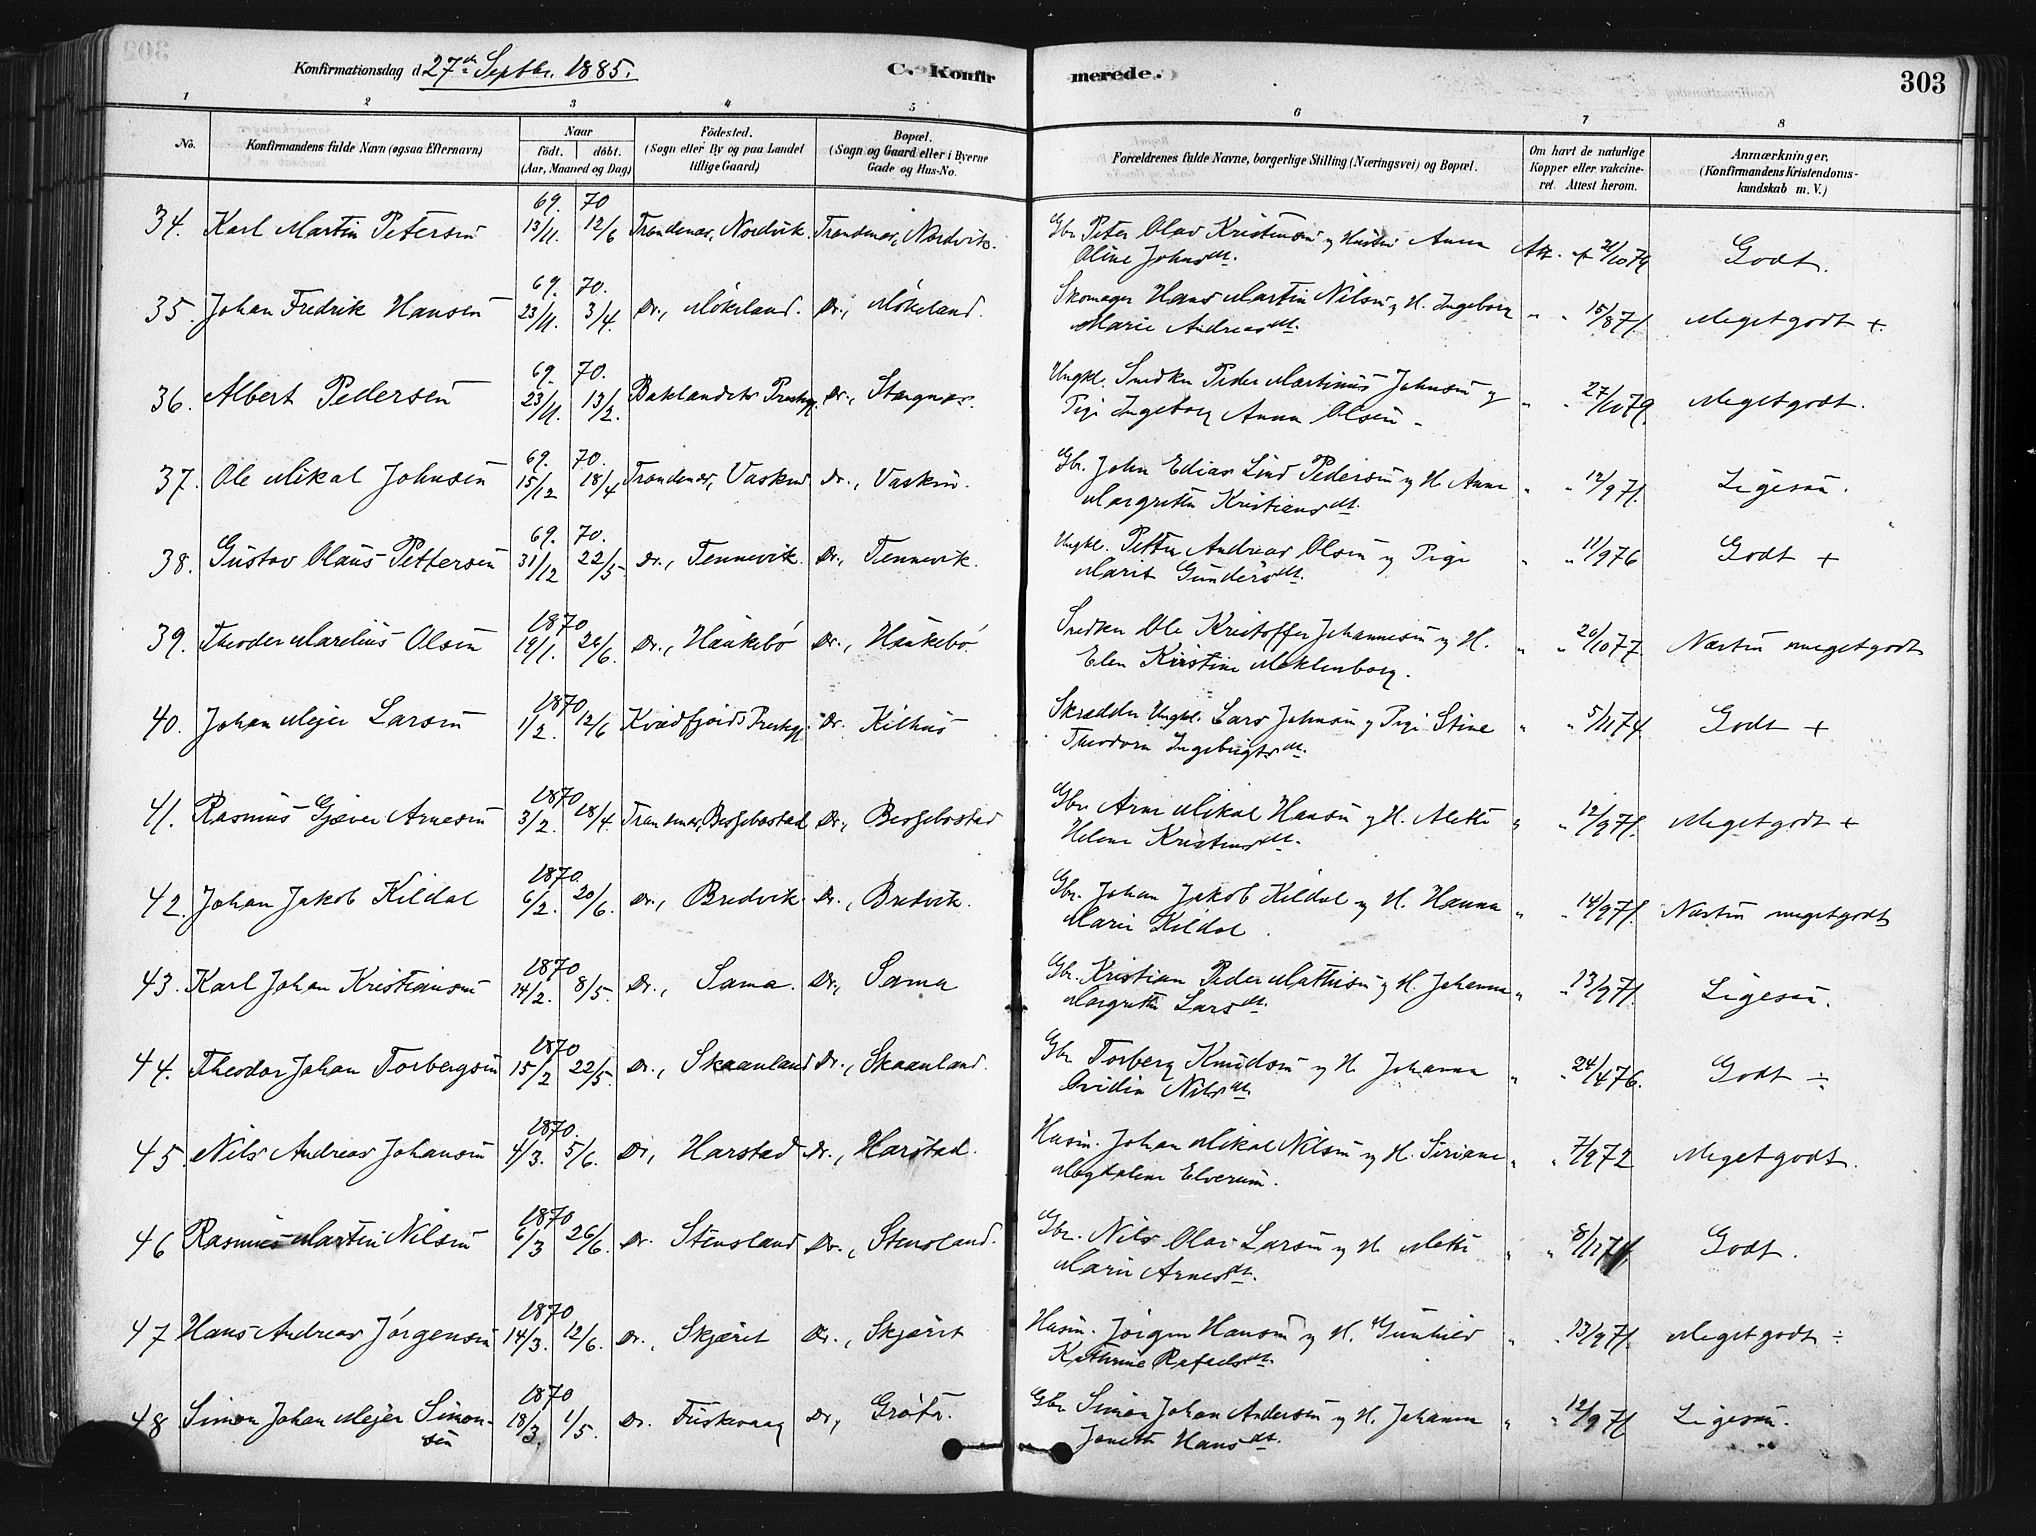 Konfirmationsdag d. 27de Septbr. 1885. C. Konfirmerede. 303
1 2 3 4 5 6 7 8
No. Konfirmandens fulde Navn (ogsaa Efternavn) Naar födt. döbt. (Aar, Maaned og Dag) Födested. (Sogn eller By og paa Landet tillige Gaard) Bopæl. (Sogn og Gaard eller i Byerne Gade og Hus-No. Forældrenes fulde Navne, borgerlige Stilling (Næringsvei) og Bopæl. Om havt de naturlige Kopper eller vakcineret. Attest herom. Anmærkninger. (Konfirmandens Kristendomskundskab m. V.)
69. 70
34. Karl Martin Petersen 13/11. 12/6 Trondenæs, Nordvik. Trondenæs, Nordvik. Gbr. Peter Olav Kristensen og Hustru Anna Att. af 21/10 74 Godt.
Oline Johnsdt.
69. 70.
35. Johan Fredrik Hansen 23/11. 3/4. Do., Møkeland. Do., Møkeland. Skomager Hans Martin Nilsen og H. Ingeborg " " 15/8 71. Meget godt +
Marie Andreasdt.
69. 70.
36. Albert Pedersen 23/11. 13/2. Baklandets Prestegj. Do., Stangnæs. Ungkl. Snedker Peder Martinus Johnsen og " " 27/10 79. Meget godt.
Pige Ingeborg Anna Olsen
69. 70.
37. Ole Mikal Johnsen 15/12 18/4 Trondenæs, Vaskind Do., Vaskin. Gbr. John Edias Lind Pedersen og H. Anne " " 12/9 71. Ligesaa.
Margrethe Kristiansdt.
69. 70.
38. Gustav Olaus Pettersen 31/12 22/5. Do., Tennevik. Do., Tennevik. Ungkl. Petter Andreas Olsen og Pige " " 11/9 76 Godt +
Marit Gundersdt.
1870
39. Theoder Marelius Olsen 19/1. 26/6. Do., Haukebö Do., Haukebö Snedker Ole Kristoffer Johannesen og H. " " 20/10 77. Næsten meget godt
Elen Kirstine Meklenborg.
1870
40. Johan Mejer Larsen 1/2. 12/6 Kvædfjords Prestegj. Do. Kilhus Skrædder Ungkl. Lars Johnsen og Pige Stine " " 5/11 74. Godt +
Theodora Ingebrigtsdt.
1870
41. Rasmus Gjæver Arnesen 3/2. 18/4. Trondenæs, Bessebostad Do., Bessebostad Gbr. Arne Mikal Hansen og H. Mette " " 12/9 71. Meget godt +
Helene Kristensdt.
1870.
42. Johan Jakob Kildal 6/2. 20/6. Do., Bredvik. Do., Bredvik. Gbr. Johan Jakob Kildal og H. Hanna " " 14/9 71. Næsten meget godt
Marie Kildal.
1870
43. Karl Johan Kristiansen 14/2. 8/5. Do., Sama. Do., Sama Gbr. Kristian Peder Mathisen og H. Johanna " " 13/9 71. Ligesaa.
Margrethe Larsdt.
1870
44. Theodor Johan Torbergsen 15/2 22/5. Do., Skaanland Do., Skaanland. Gbr. Torberg Knudsen og H. Johanna " " 24/4 76. Godt ÷
Ovidia Nilsdt.
1870.
45. Nils Andreas Johansen 4/3. 5/6. Do., Harstad Do., Harstad. Husm. Johan Mikal Nilsen og H. Siriane " " 7/9 72 Meget godt.
Magdalene Elverum.
1870
46 Rasmus Martin Nilsen 6/3 26/6. Do. Stensland Do., Stensland. Gbr. Nils Olai Larsen og H. Mette " " 8/11 71. Godt.
Marie Arnesdt.
1870
47 Hans Andreas Jörgensen 14/3. 12/6. Do., Skjærit Do., Skjærit Husm. Jörgen Hansen og H. Gunhild " 13/9 71. Meget godt ÷
Kathrine Rafaelsdt.
1870
48 Simon Johan Mejer Simon- 18/3. 1/5. Do. Fuskevaag Do., Grøtø. Gbr. Simon Johan Andersen og H. Johanna " " 12/9 71 Ligesaa.
sen Janette Hansdt.